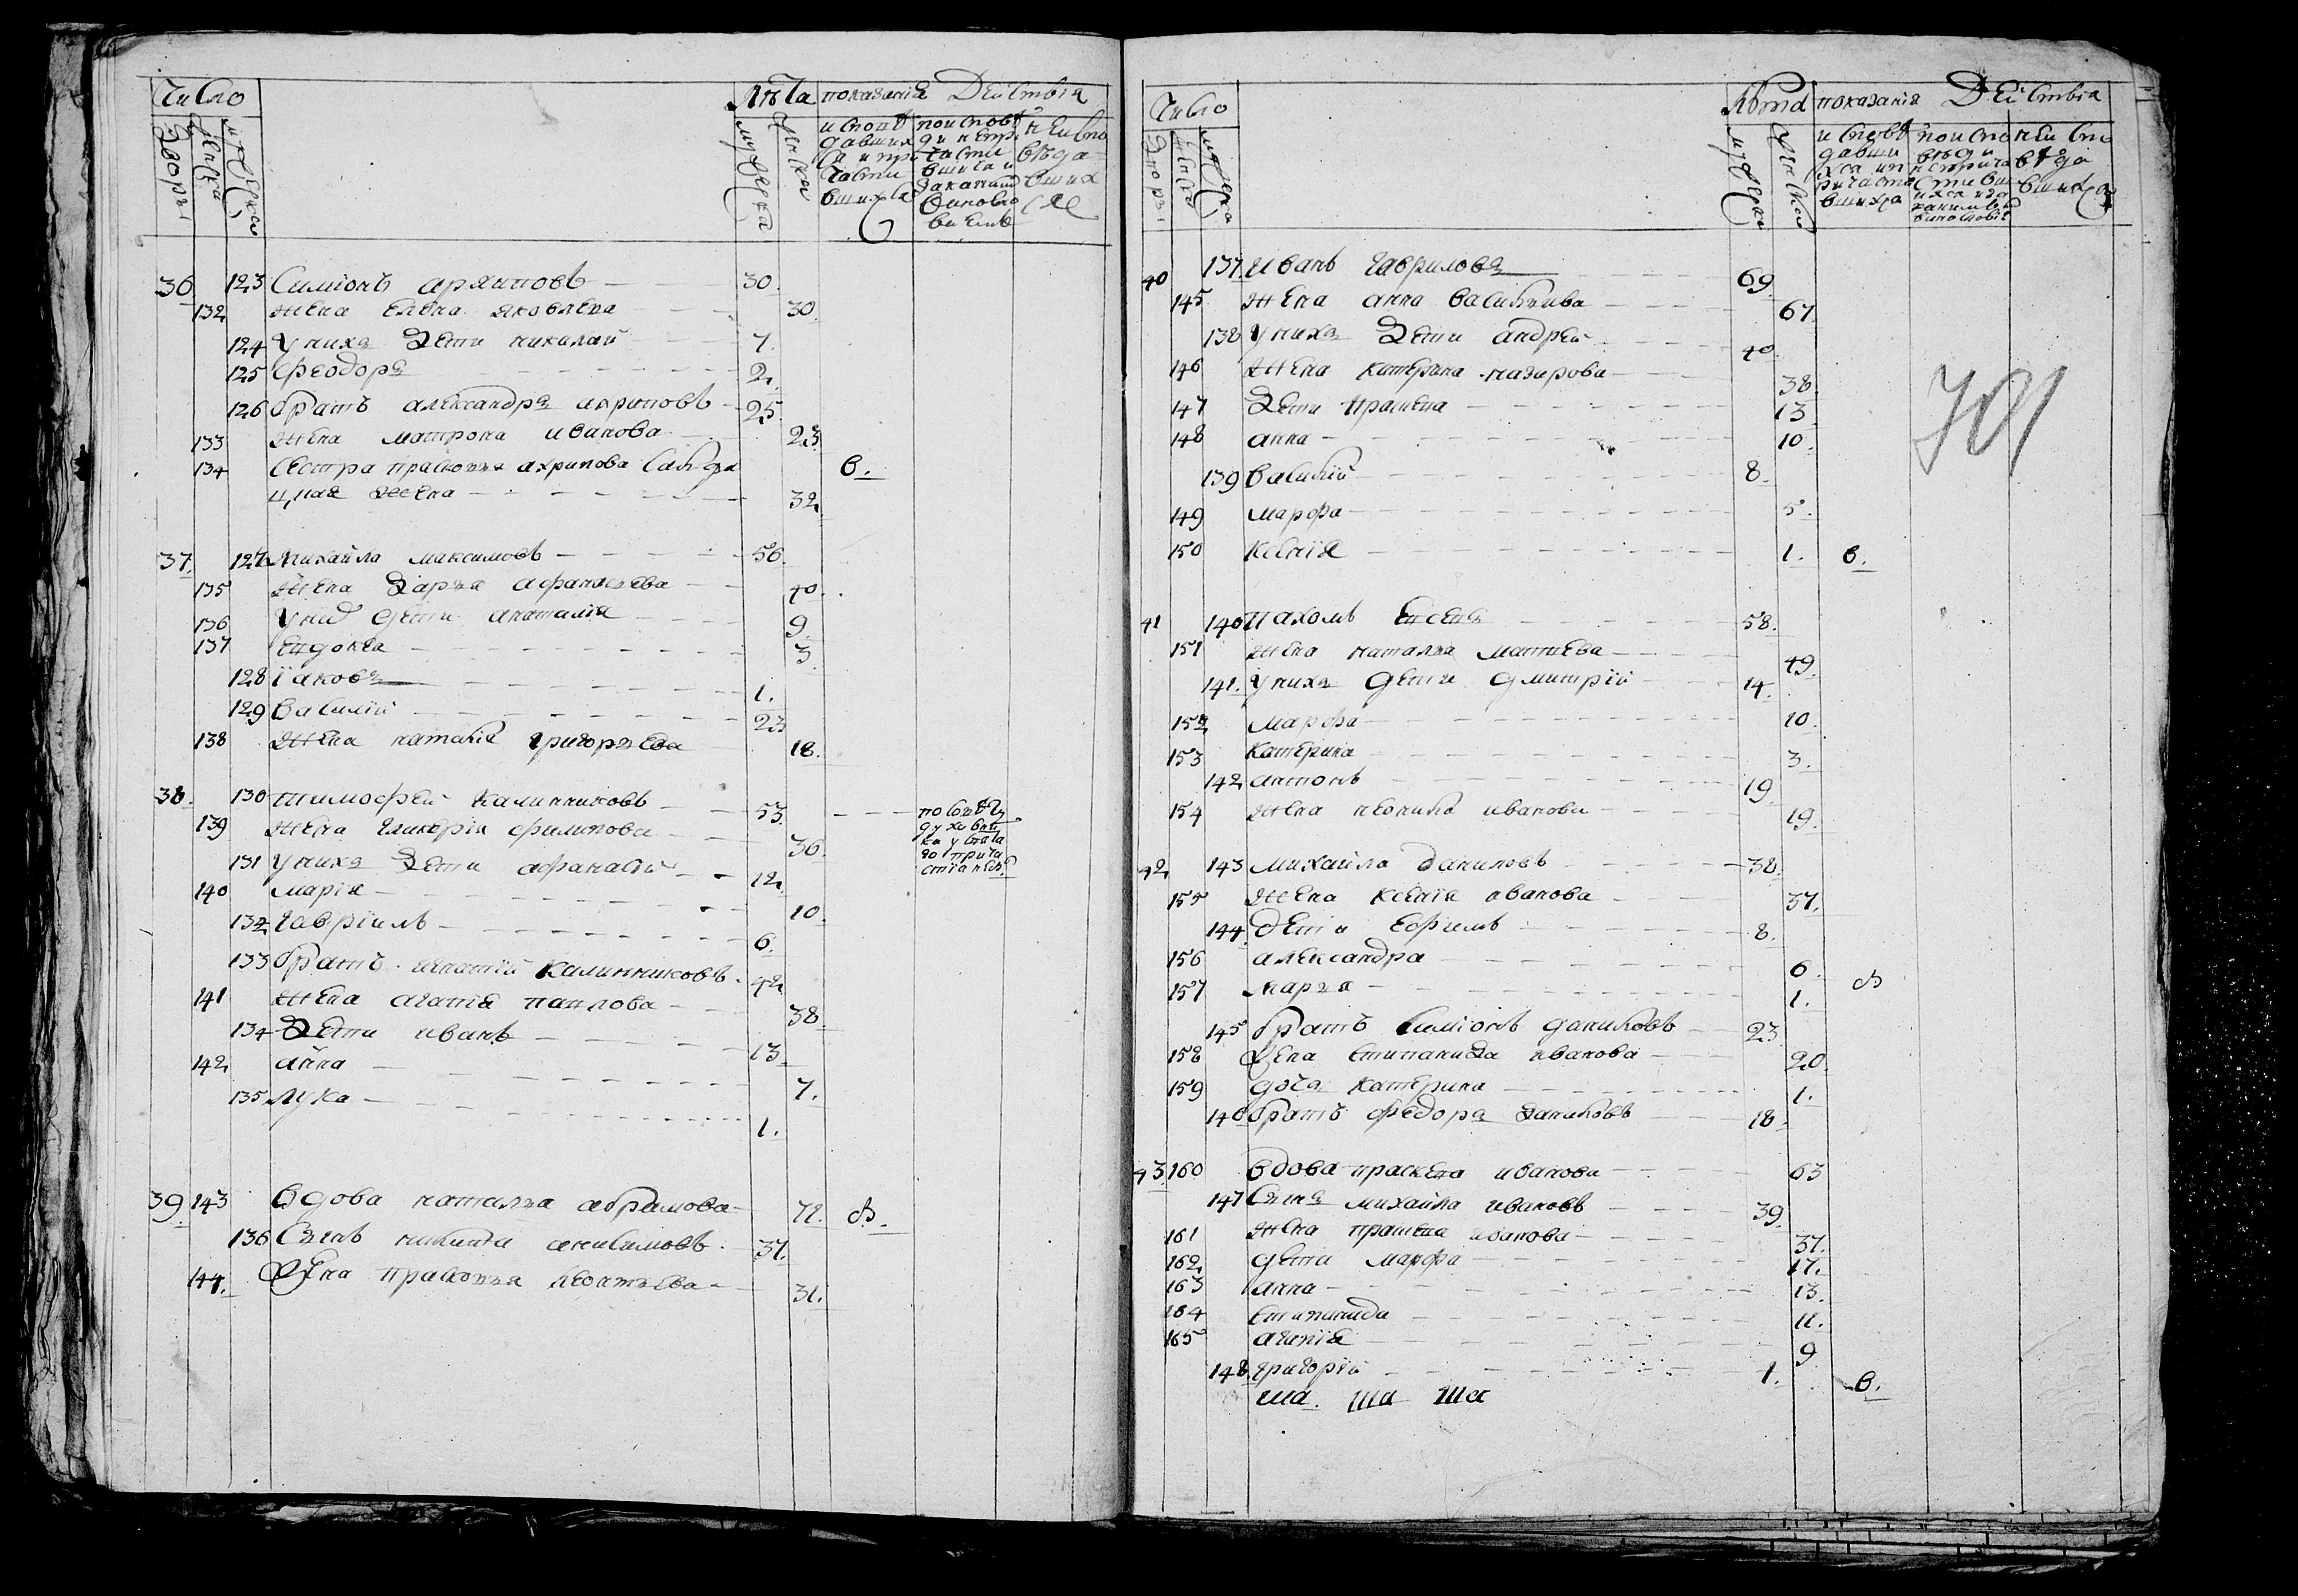 Число Лѣта показанія Действія
дворы женска мужеска мужеска женска
36 123 Симіонъ архиповъ 30.
132 жена Елена яковлева 30.
124 у нихъ дети николай 7.
125 Феодоръ 2.
126 братъ александръ ахриповъ 25.
133 жена матрона иванова 23.
134 сестра прасковья ахрипова салда в.
цкая жена 32.
37. 127 михайла максимовъ 56.
135 жена дарья афанасьева 40.
136 у них дети анаталия 9.
137 евдокея 3.
128 іаковъ 1.
129 василій 23
138 жена наталія григорьева 18.
38. 130 тимофей калинниковъ 53. по совету
139 жена гликерія филипова 36. духовни
ка у стата
131 у нихъ дети афанасій 12. до прича
стіа
140 марія 10.
132 гавріилъ 6.
133 братъ игнатій калинниковъ 42.
141 жена агапія павлова 38.
134 дети иванъ 13.
142 анна 7.
135 лука 1.
39. 143 вдова наталья абрамова 72. в.
136 сынъ никита анисимовъ 37.
144. жена прасковья леонтьева 31.
Число Лѣта показанія Действія
дворы женска мужеска мужеска женска
40 137 иванъ гавриловъ 69.
145 жена анна васильива 67.
138 у нихъ дети андрей 40.
146 жена катерина назарова 38.
147 дети праскева 13
148 анна 10.
139 василій 8.
149 марфа 5.
150 ксенія 1. в.
41 140 пахомъ евсевъ 58.
151 жена наталья матвева 49.
141. у нихъ дети дмитрій 14.
152 марфа 10.
153 катерина 3.
142 антонъ 19.
154 жена неонила иванова 19.
42 143 михайла даниловъ 38.
155 жена ксенія иванова 37.
144. дети ефимъ 8.
156 александра 6.
157 марья 1. в
145 братъ симіонъ даниловъ 23
158 жена степанида иванова 20.
159 дочь катерина 1.
146 братъ федоръ даниловъ 18.
43. 160 вдова праскева иванова 63
147 сынъ михайла ивановъ 39
161 жена праскева иванова 37.
162 дети марфа 17.
163 анна 13.
164 степанида 11.
165 агапія 9
148. григорій 1. в.
ша. ша ша